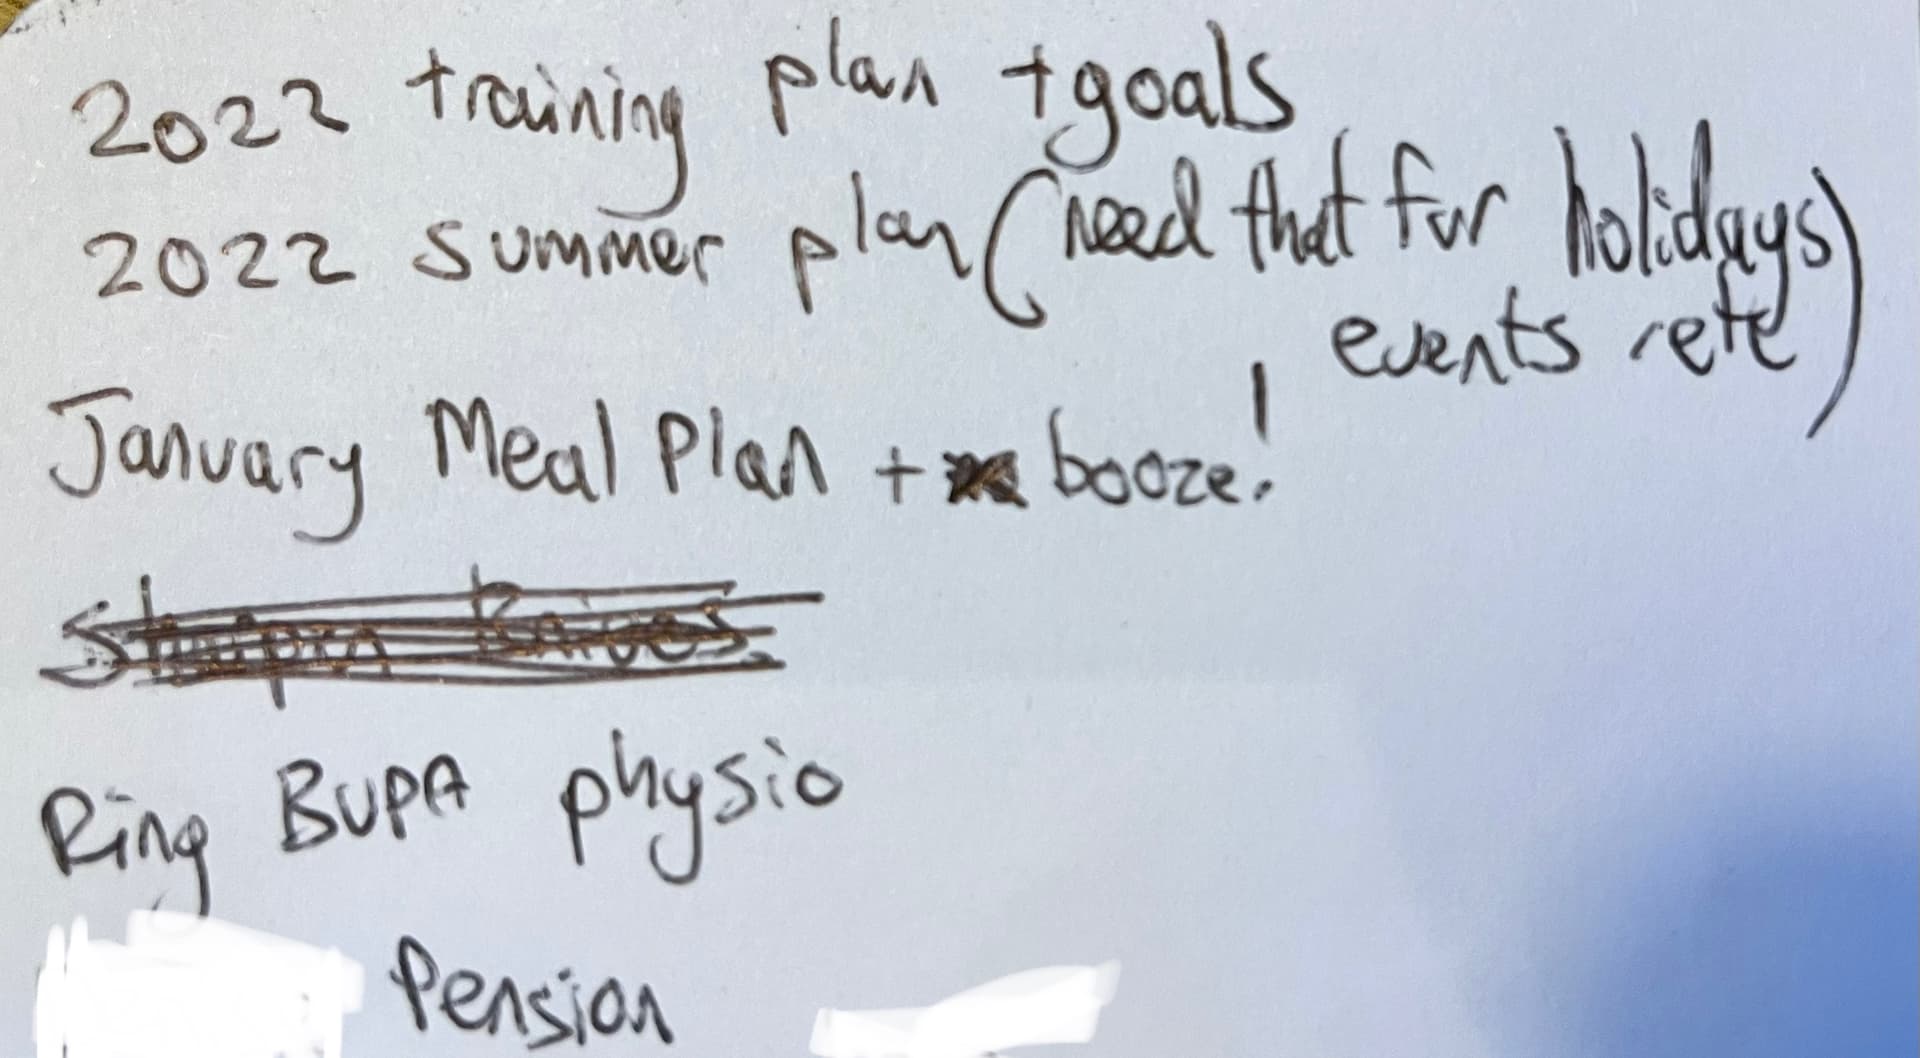 2022 training plan + goals
2022 summer plan (need that for holidays
events, etc)
January Meal Plan + booze!
Sharpen Knives
Ring BUPA physio
Pension